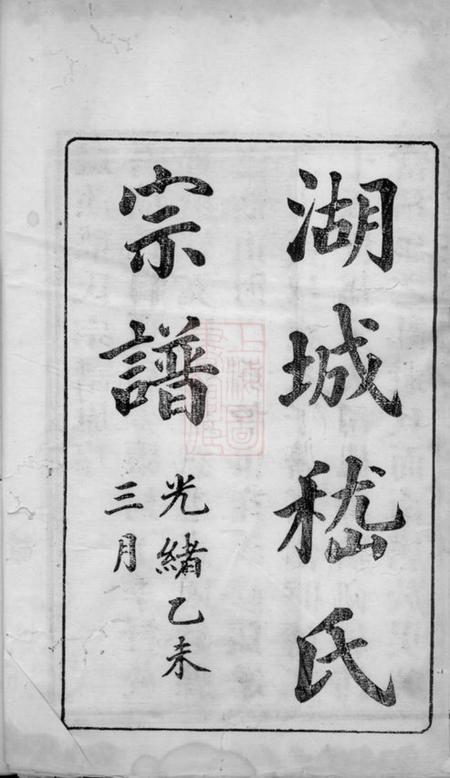 湖城嵇氏
宗譜
光緒乙未
三月
上海圖